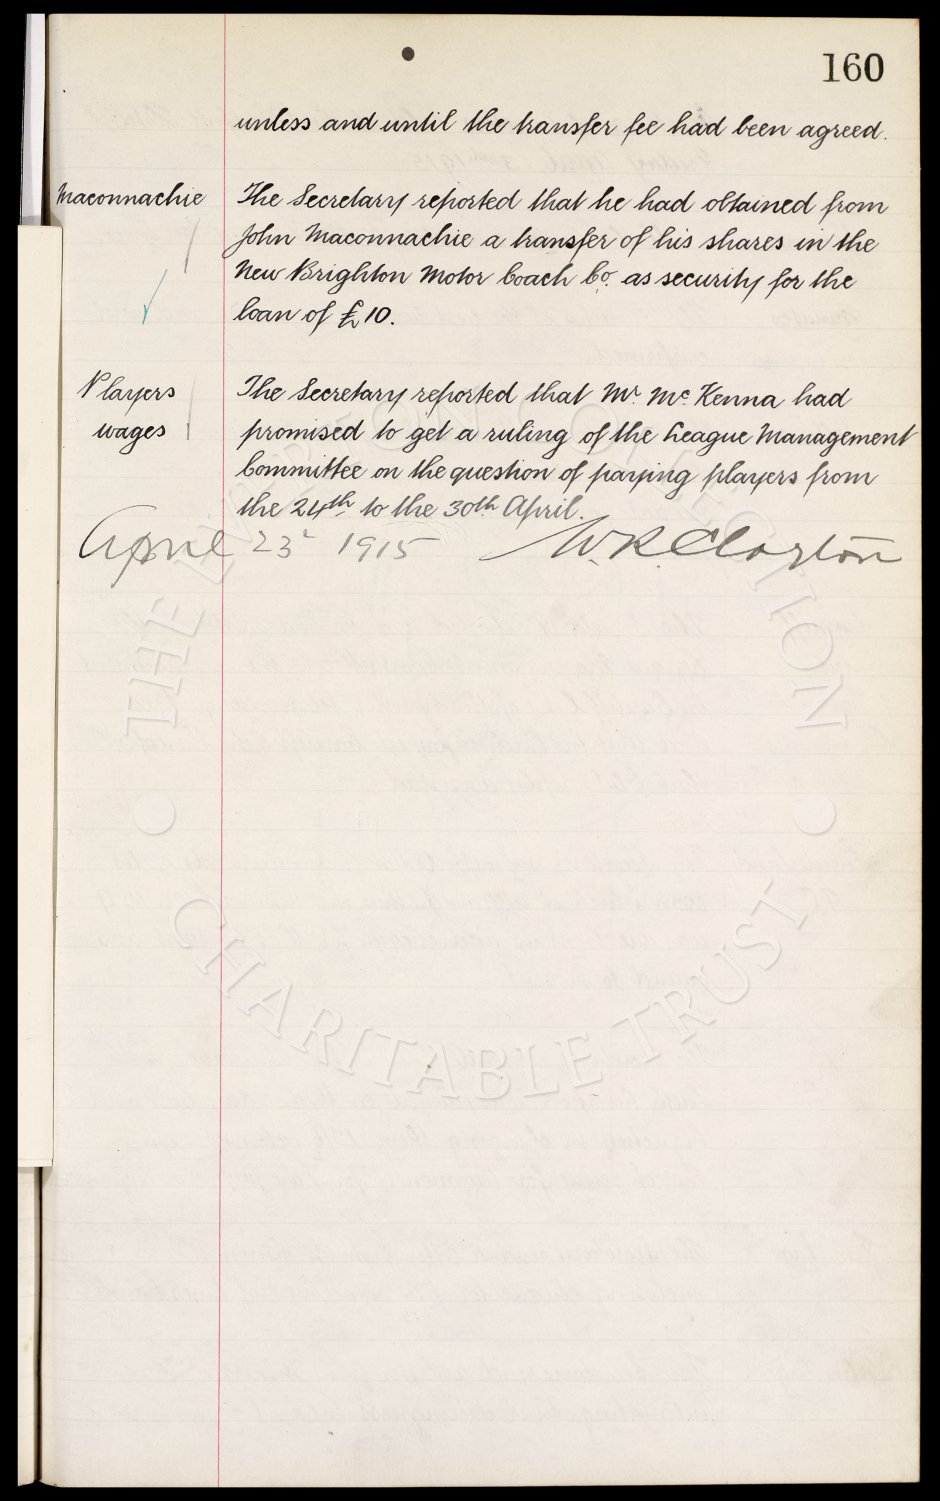 160
unless and until the transfer fee had been agreed.
Maconnachie The Secretary reported that he had obtained from
John Maconnachie a transfer of his shares in the
New Brighton Motor Coach Co. as security for the
loan of £10.
Players The Secretary reported that Mr. McKenna had
wages promised to get a ruling of the League Management
Committee on the question of paying players from
the 24th to the 30th April.
April 23 1915 W.R. Clayton
THE EVERTON COLLECTION
CHARITABLE TRUST